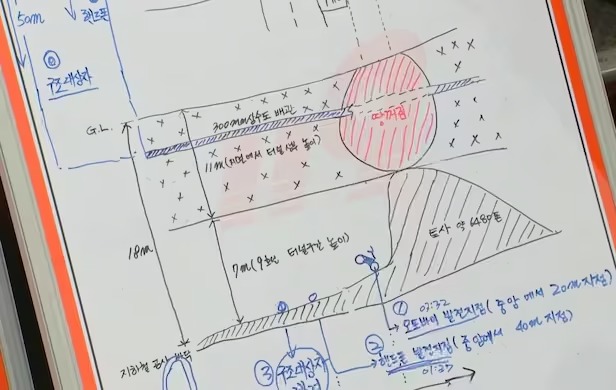 50m
핸드폰
⓪
구조대상자
G.L.
300mm상수도 배관
땅꺼짐
11m(지면에서 터널상부 높이)
18m
7m(9호선 터널구간 높이)
토사 약 6480톤
① 03:32
오토바이 발견지점(중앙에서 20m지점)
② 핸드폰 발견지점(중앙에서 40m지점)
01:37
③ 구조대상자
지하철 공사